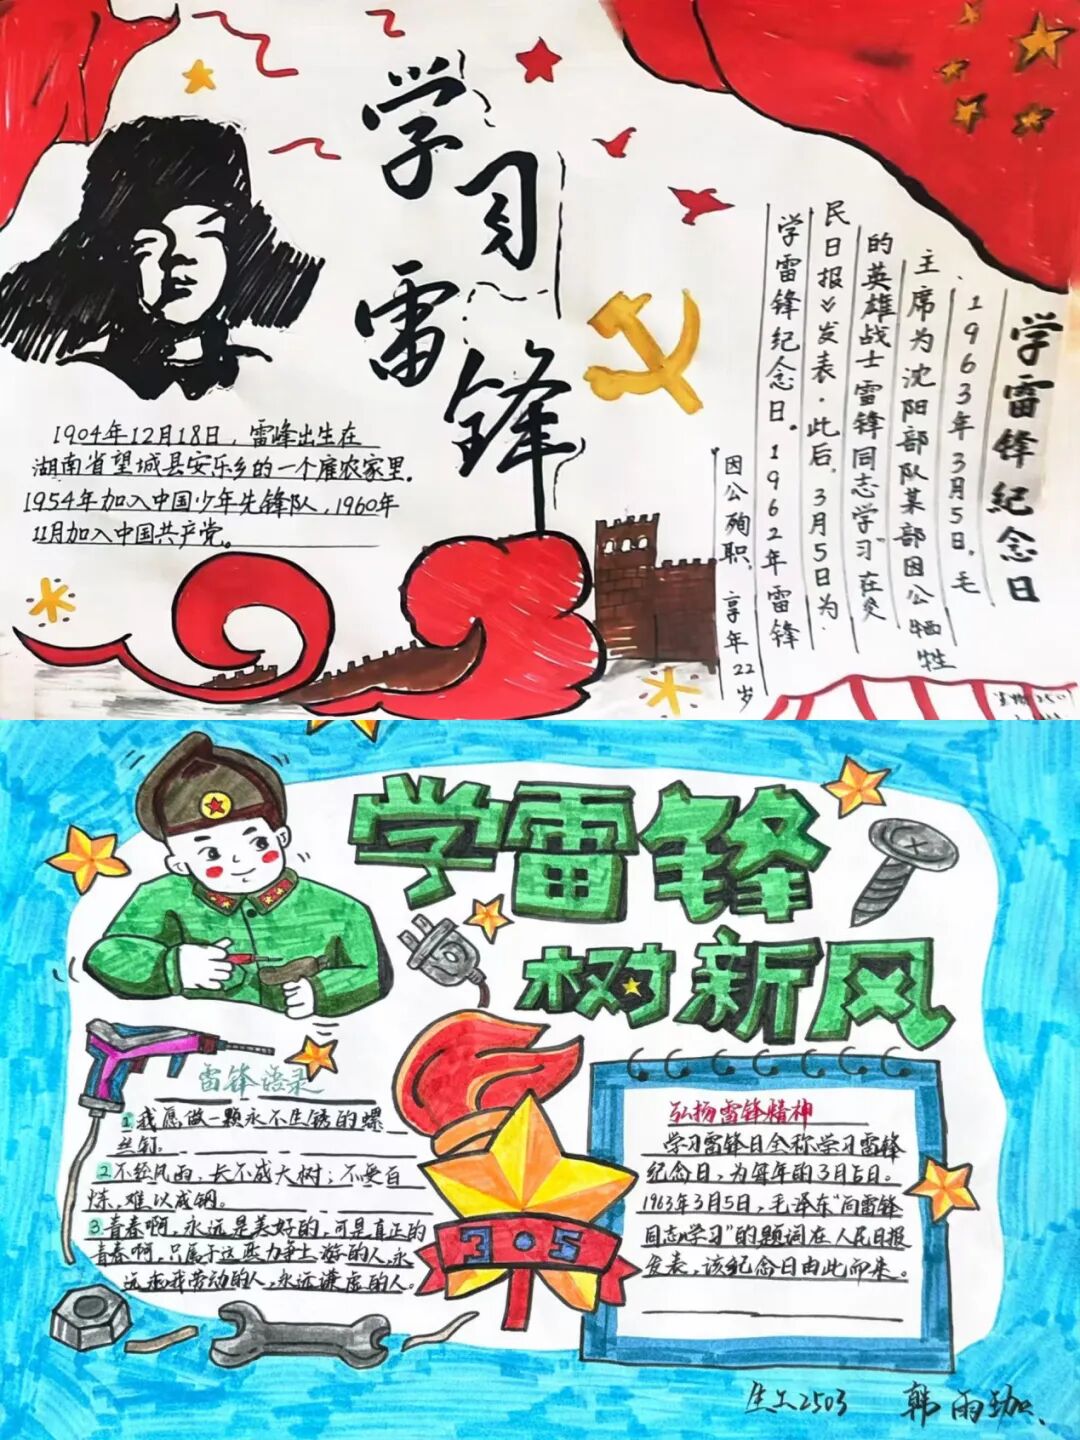 学习雷锋
1904年12月18日，雷峰出生在
湖南省望城县安乐乡的一个雇农家里。
1954年加入中国少年先锋队，1960年
11月加入中国共产党。
学雷锋纪念日
1963年3月5日。毛
主席为沈阳部队某部因公牺牲
的英雄战士雷锋同志学习”在《人
民日报》发表.此后，3月5日为
学雷锋纪念日。1962年雷锋
因公殉职，享年22岁
学雷锋
树新风
雷锋语录
1.我愿做一颗永不生锈的螺
丝钉。
2.不经风雨，长不成大树；不受百
炼，难以成钢。
3.青春啊，永远是美好的，可是真正的
青春啊，只属于这些力争上游的人，永
远忘我劳动的人，永远谦虚的人。
3·5
弘扬雷锋精神
学习雷锋日全称学习雷锋
纪念日，为每年的3月5日。
1963年3月5日，毛泽东“向雷锋
同志学习”的题词在人民日报
发表，该纪念日由此而来。
生工2503 韩雨珈